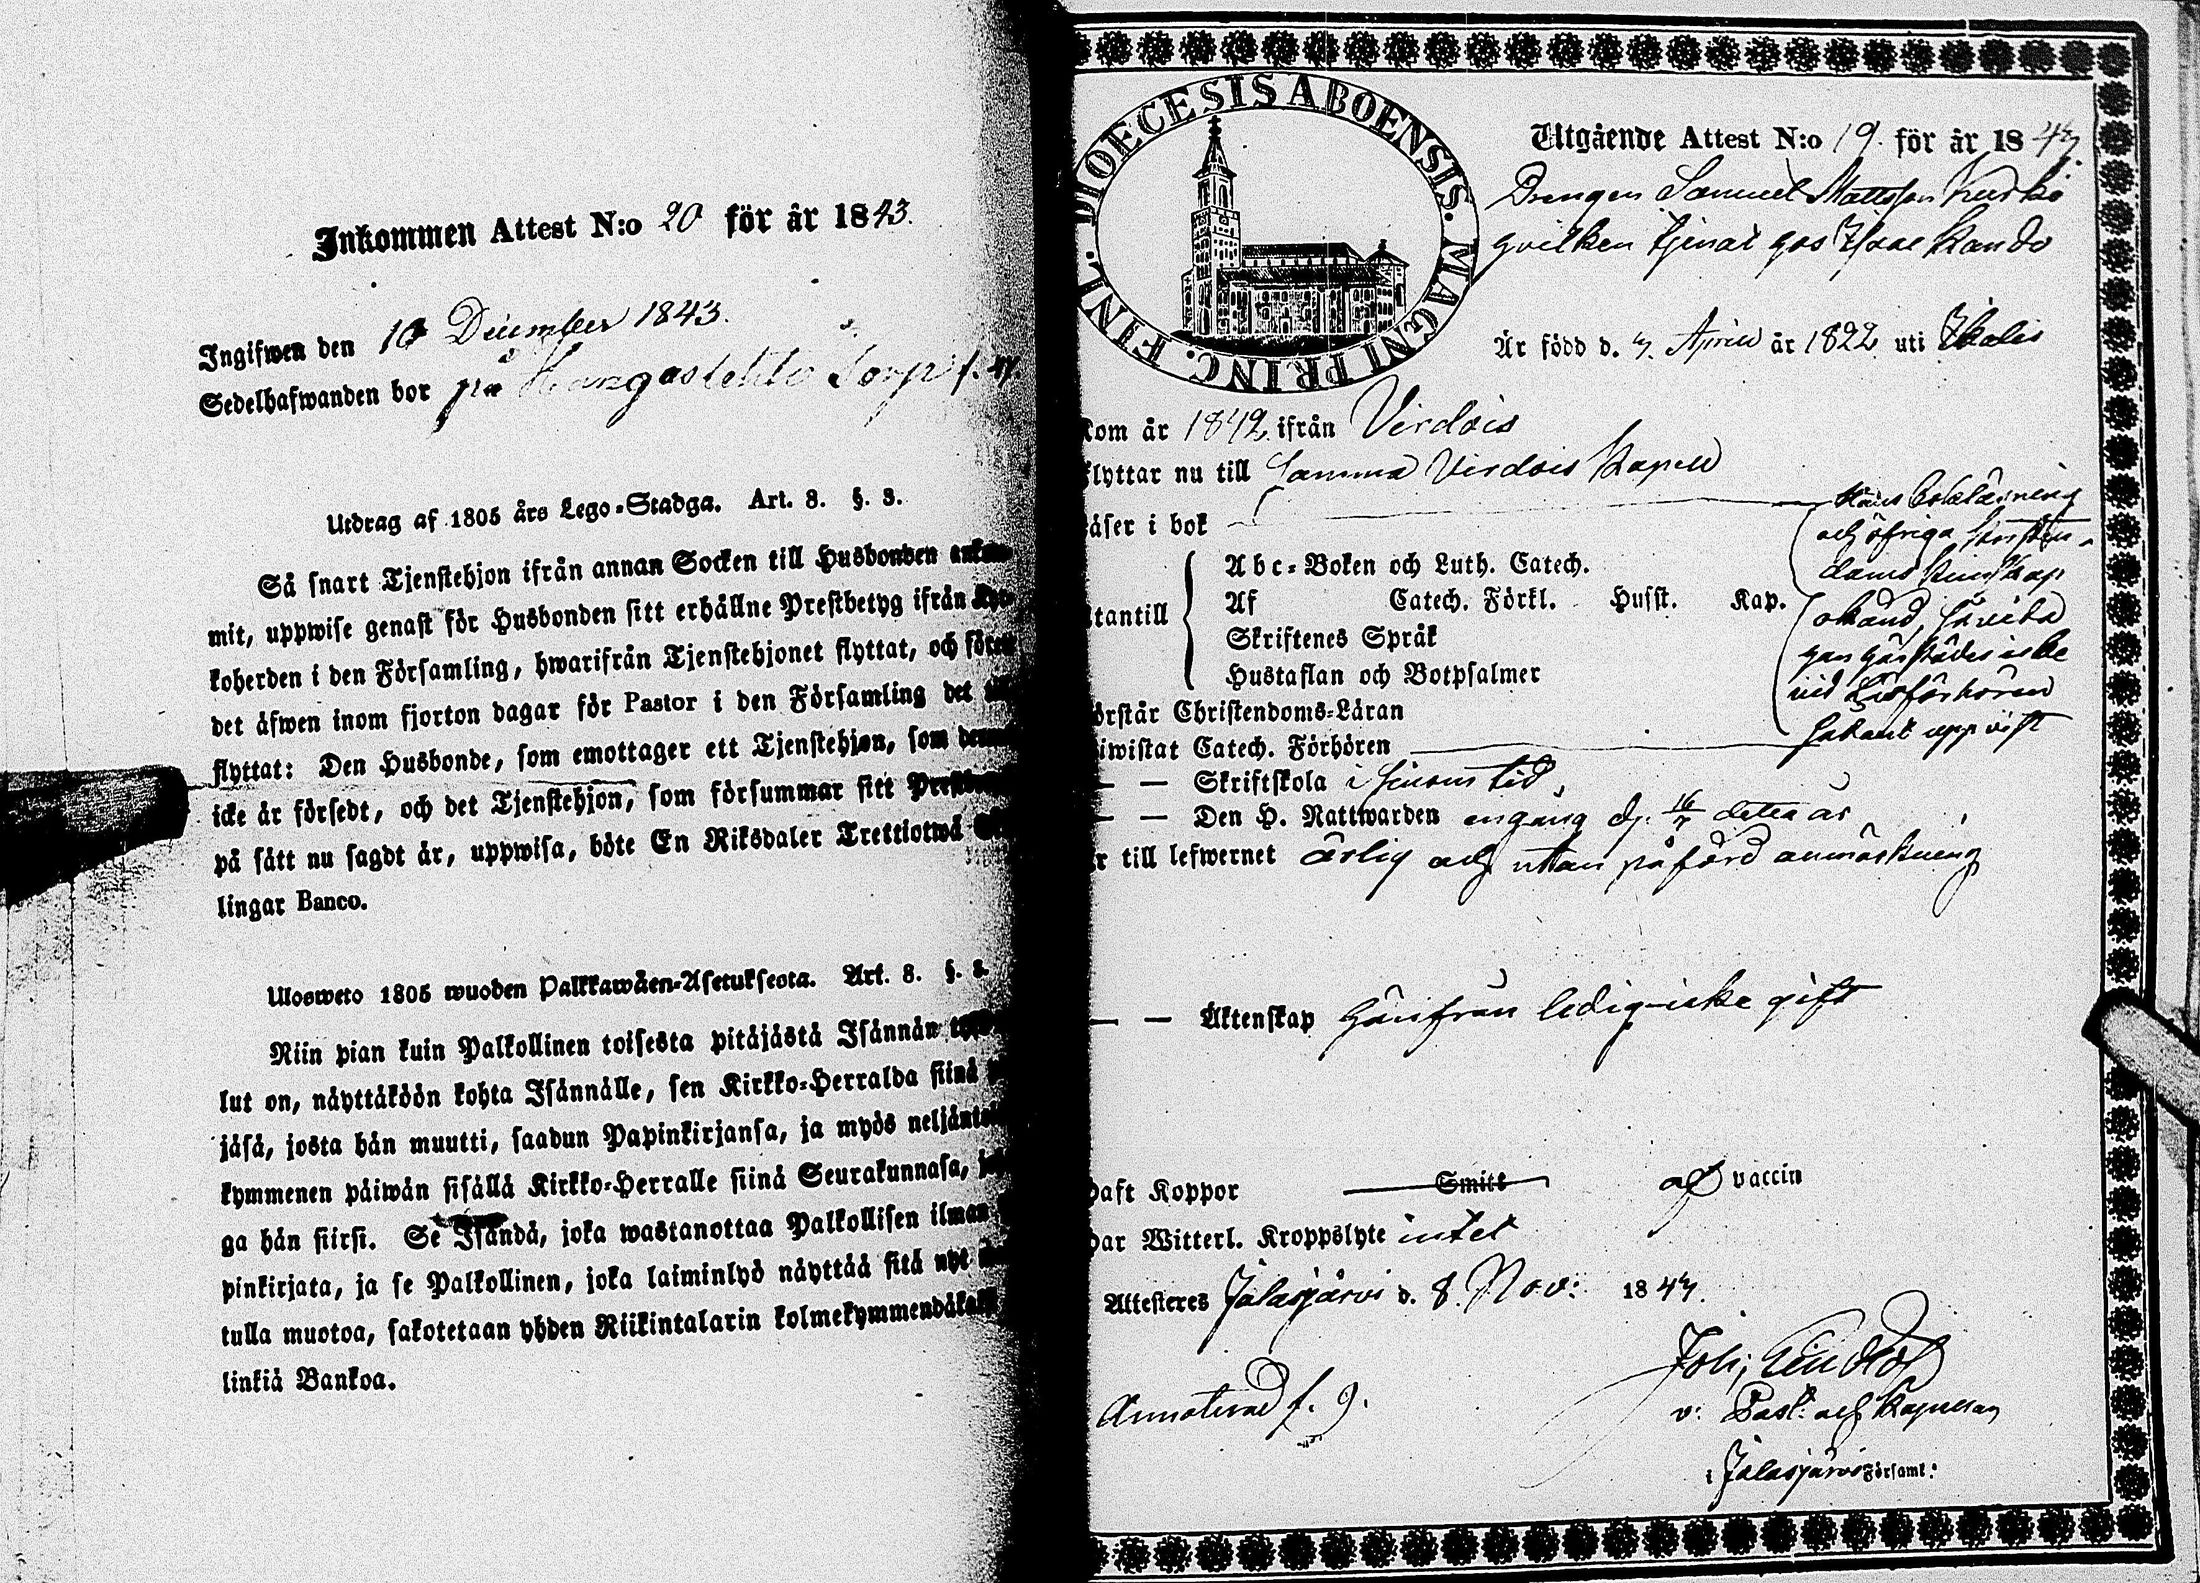 Inkommen Attest N:o 20 för år 1843.
Ingifwen den 10 December 1843.
Sedelhafwanden bor på Torp f.
Utdrag af 1805 års Lego-Stadga. Art. 8. §. 3.
Så snart Tjenstehjon ifrån annan Socken till Husbonden
mit, uppwise genast för Husbonden sitt erhållne Prestbetyg ifrån
koherden i den Församling, hwarifrån Tjenstehjonet flyttat, och
det äfwen inom fjorton dagar för Pastor i den Församling det
flyttat: Den Husbonde, som emottager ett Tjenstehjon, som
icke är försedt, och det Tjenstehjon, som försummar sitt
på sätt nu sagdt är, uppwisa, böte En Riksdaler Trettiotwå
lingar Banco.
Ulosweto 1805 wuoden Palkkawäen-Asetuksesta. Art. 8. §. 3.
Niin pian kuin Palkollinen toisesta pitäjästä Isännän
lut on, näyttäköön kohta Isännälle, sen Kirkko-Herralda siinä
jäsä, josta hän muutti, saadun Papinkirjansa, ja myös
kymmenen päiwän sisällä Kirkko-Herralle siinä Seurakunnasa,
ga hän siirsi. Se Isändä, joka wastanottaa Palkollisen ilman
pinkirjata, ja se Palkollinen, joka laiminlyö näyttää sitä nyt
tulla muotoa, sakotetaan yhden Riikintalarin
linkiä Bankoa.
DIOECESIS ABOENSIS. MAGNI PRINC. FINL.
Utgående Attest N:o 19. för år 1843.
Drengen Samuel Mattsson Kurki
hvilken tjenat hos Isaac Kando
Är född d. 7. April år 1822 uti Ikalis
Kom år 1842 ifrån Virdois
flyttar nu till samma Virdois Kapell
läser i bok
Hans bokläsning
och öfriga Christen-
doms kunskap
okänd,
han härstädes icke
vid Läsförhören
sådant uppvist
Abc-Boken och Luth. Catech.
Utantill Af Catech. Förkl. Husst. Kap.
Skriftenes Språk
Hustaflan och Botpsalmer
förstår Christendoms-Läran
biwistat Catech. Förhören
— — Skriftskola i sinom tid,
— — Den H. Nattwarden engång d. 16/7 detta år
Är till lefwernet ärlig och utan påförd anmärkning
— — Äktenskap härifrån ledig icke gift
haft Koppor Smitt af vaccin
har Witterl. Kroppslyte intet
Attesteres Jalasjärvi d. 8. Nov: 1843.
Joh:
v: Past: och Kapellan
Annoterad f. 9.
i Jalasjärvi Församl: